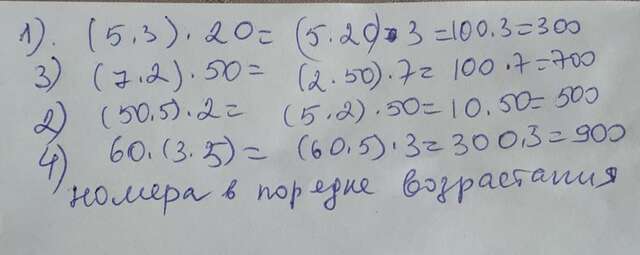 1). (5.3).20= (5.20).3=100.3=300
3) (7.2).50= (2.50).7= 100.7=700
2) (50.5).2= (5.2).50=10.50=500
4) 60.(3.5)= (60.5).3=300.3=900
номера в порядке возрастания